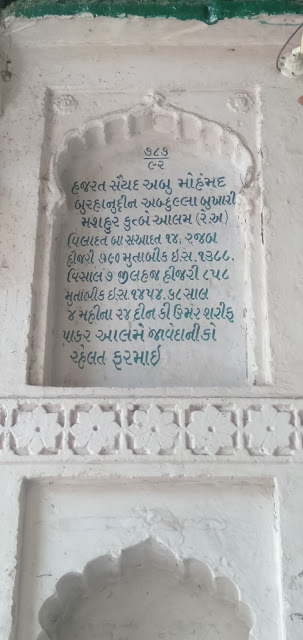 ૭૮૬
૯-૨
હજરત સૈયદ અબુ મોહંમદ
બુરહાનુદ્દીન અબ્દુલ્લા બુખારી
મશહુર કુત્બે આલમ (રે.અ)
વિલાદત બા સઆદત ૧૪, રજબ
હીજરી ૭૯૦ મુતાબીક ઇ.સ. ૧૩૮૮.
વિસાલ ૭ જીલહજ હીજરી ૮૫૮
મુતાબીક ઇસ. ૧૪૫૪. ૬૮ સાલ
૪ મહીના ૨૪ દીન કી ઉમર શરીફ
પાકર આલમે જાવેદાની કો
રહેલત ફરમાઇ